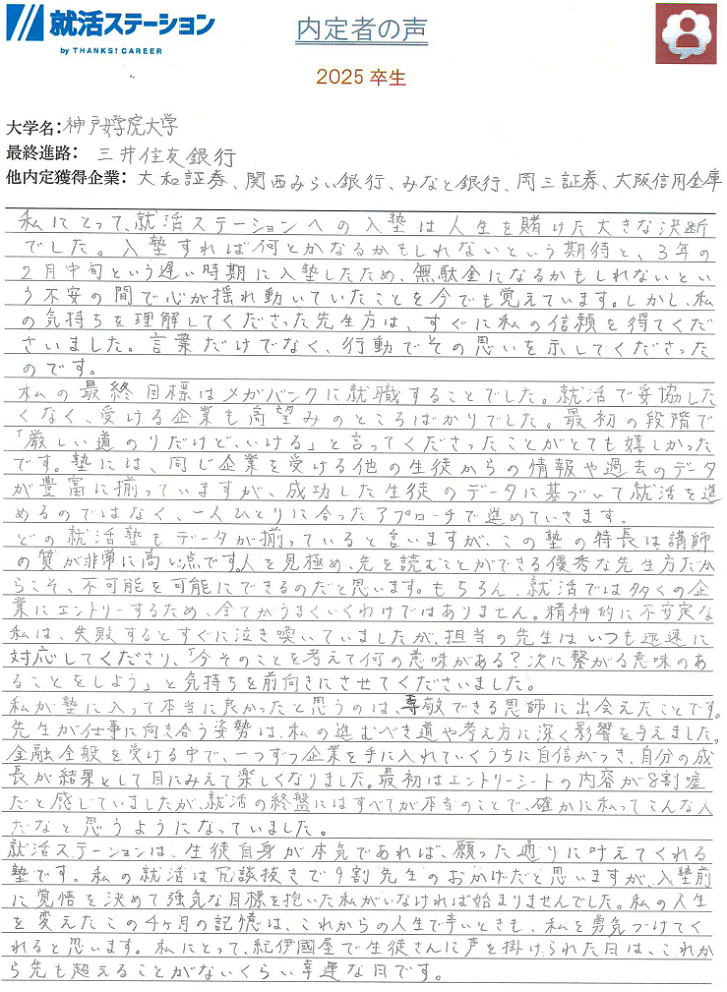 就活ステーション
by THANKS! CAREER
内定者の声
2025 卒生
大学名: 神戸女学院大学
最終進路: 三井住友銀行
他内定獲得企業: 大和証券、関西みらい銀行、みなと銀行、岡三証券、大阪信用金庫
私にとって、就活ステーションへの入塾は人生を賭けた大きな決断
でした。入塾すれば何とかなるかもしれないという期待と、3年の
2月中旬という遅い時期に入塾したため、無駄金になるかもしれないとい
う不安の間で心が揺れ動いていたことを今でも覚えています。しかし、私
の気持ちを理解してくださった先生方は、すぐに私の信頼を得てくだ
さいました。言葉だけでなく、行動でその思いを示してくださった
のです。
私の最終目標はメガバンクに就職することでした。就活で妥協した
くなく、受ける企業も高望みのところばかりでした。最初の段階で
「厳しい道のりだけど、いける」と言ってくださったことがとても嬉しかった
です。塾には、同じ企業を受ける他の生徒からの情報や過去のデータ
が豊富に揃っていますが、成功した生徒のデータに基づいて就活を進
めるのではなく、一人ひとりに合ったアプローチで進めていきます。
どの就活塾もデータが揃っていると言いますが、この塾の特長は講師
の質が非常に高い点です。人を見極め、先を読むことができる優秀な先生方だか
らこそ、不可能を可能にできるのだと思います。もちろん、就活では多くの企
業にエントリーするため、全てがうまくいくわけではありません。精神的に不安定な
私は、失敗するとすぐに泣き喚いていましたが、担当の先生はいつも迅速に
対応してくださり、「今そのことを考えて何の意味がある?次に繋がる意味のあ
ることをしよう」と気持ちを前向きにさせてくださいました。
私が塾に入って本当に良かったと思うのは、尊敬できる恩師に出会えたことです。
先生が仕事に向き合う姿勢は、私の進むべき道や考え方に深く影響を与えました。
金融全般を受ける中で、一つずつ企業を手に入れていくうちに自信がつき、自分の成
長が結果として目にみえて楽しくなりました。最初はエントリーシートの内容が8割嘘
だと感じていましたが、就活の終盤にはすべてが本当のことで、確かに私ってこんな人
だなと思うようになっていました。
就活ステーションは、生徒自身が本気であれば、願った通りに叶えてくれる
塾です。私の就活は冗談抜きで9割先生のおかげだと思いますが、入塾前
に覚悟を決めて強気な目標を抱いた私がいなければ始まりませんでした。私の人生
を変えたこの4ヶ月の記憶は、これからの人生で辛いときも、私を勇気づけてく
れると思います。私にとって、紀伊國屋で生徒さんに声を掛けられた日は、これか
ら先も超えることがないくらい幸運な日です。